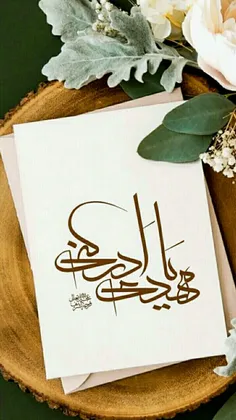 یا مهدی ادرکنی